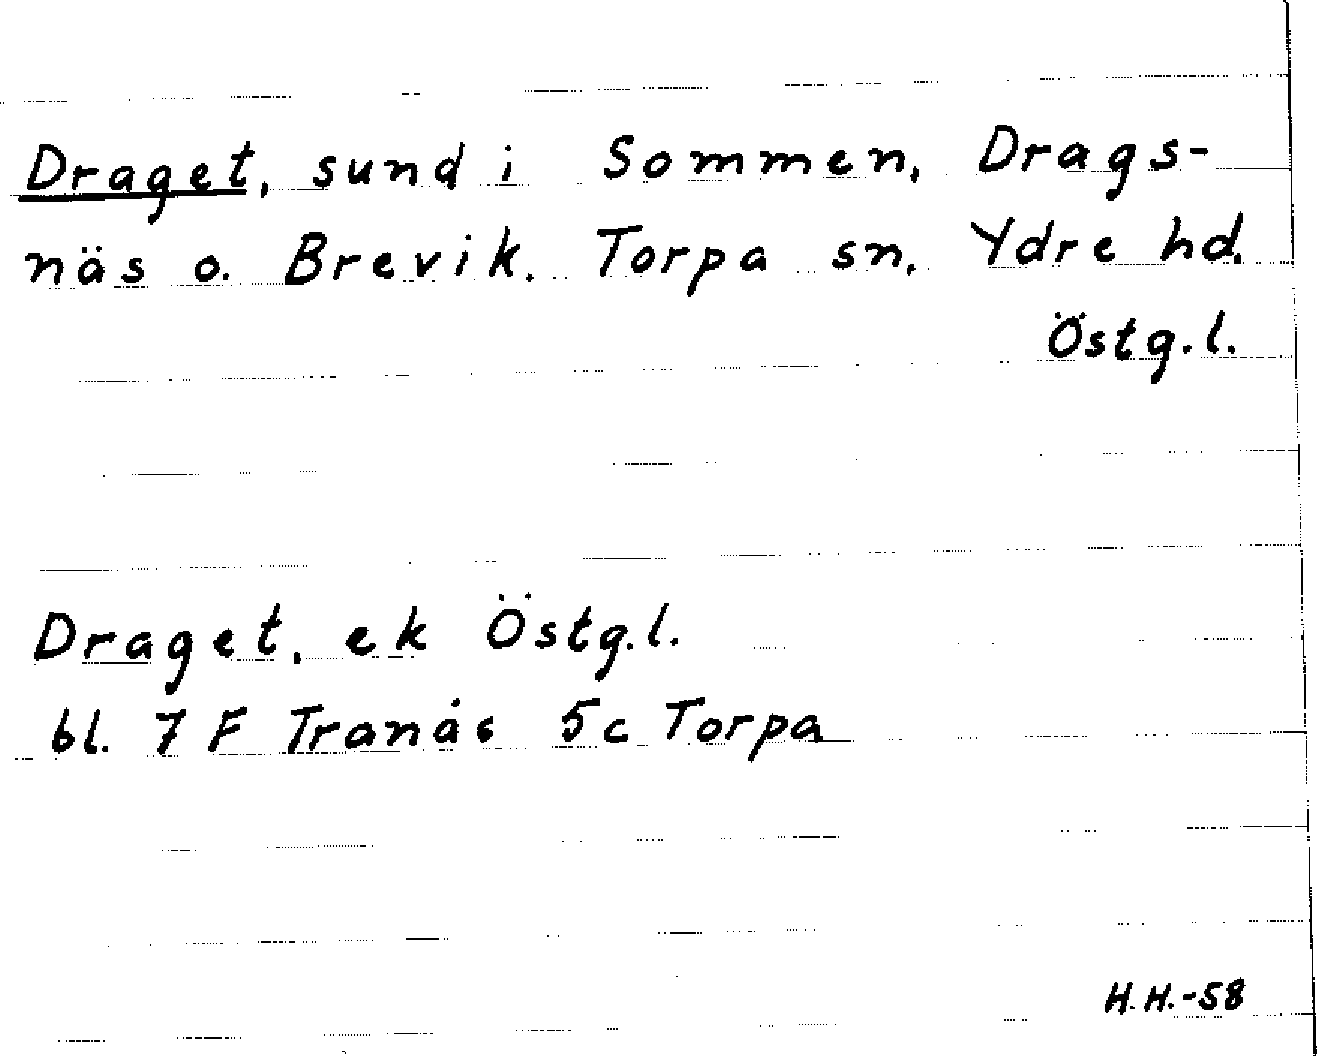 Draget, sund i Sommen, Drags-
näs o. Brevik. Torpa sn. Ydre hd.
Östg.l.
Draget, ek Östg.l.
bl. 7 F Tranås 5c Torpa
H.H.-58